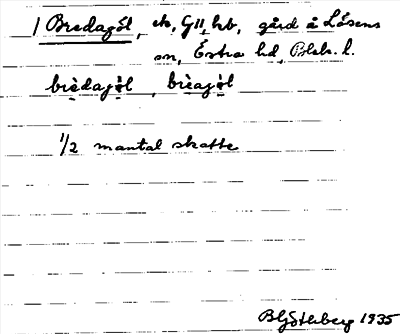 1 Bredagöl, ek, G11, hb, gård å Lösens
sn, Östra hd, Blek. l.
brèdagø̀l, brèagø̀l
1/2 mantal skatte
BGötherberg 1935